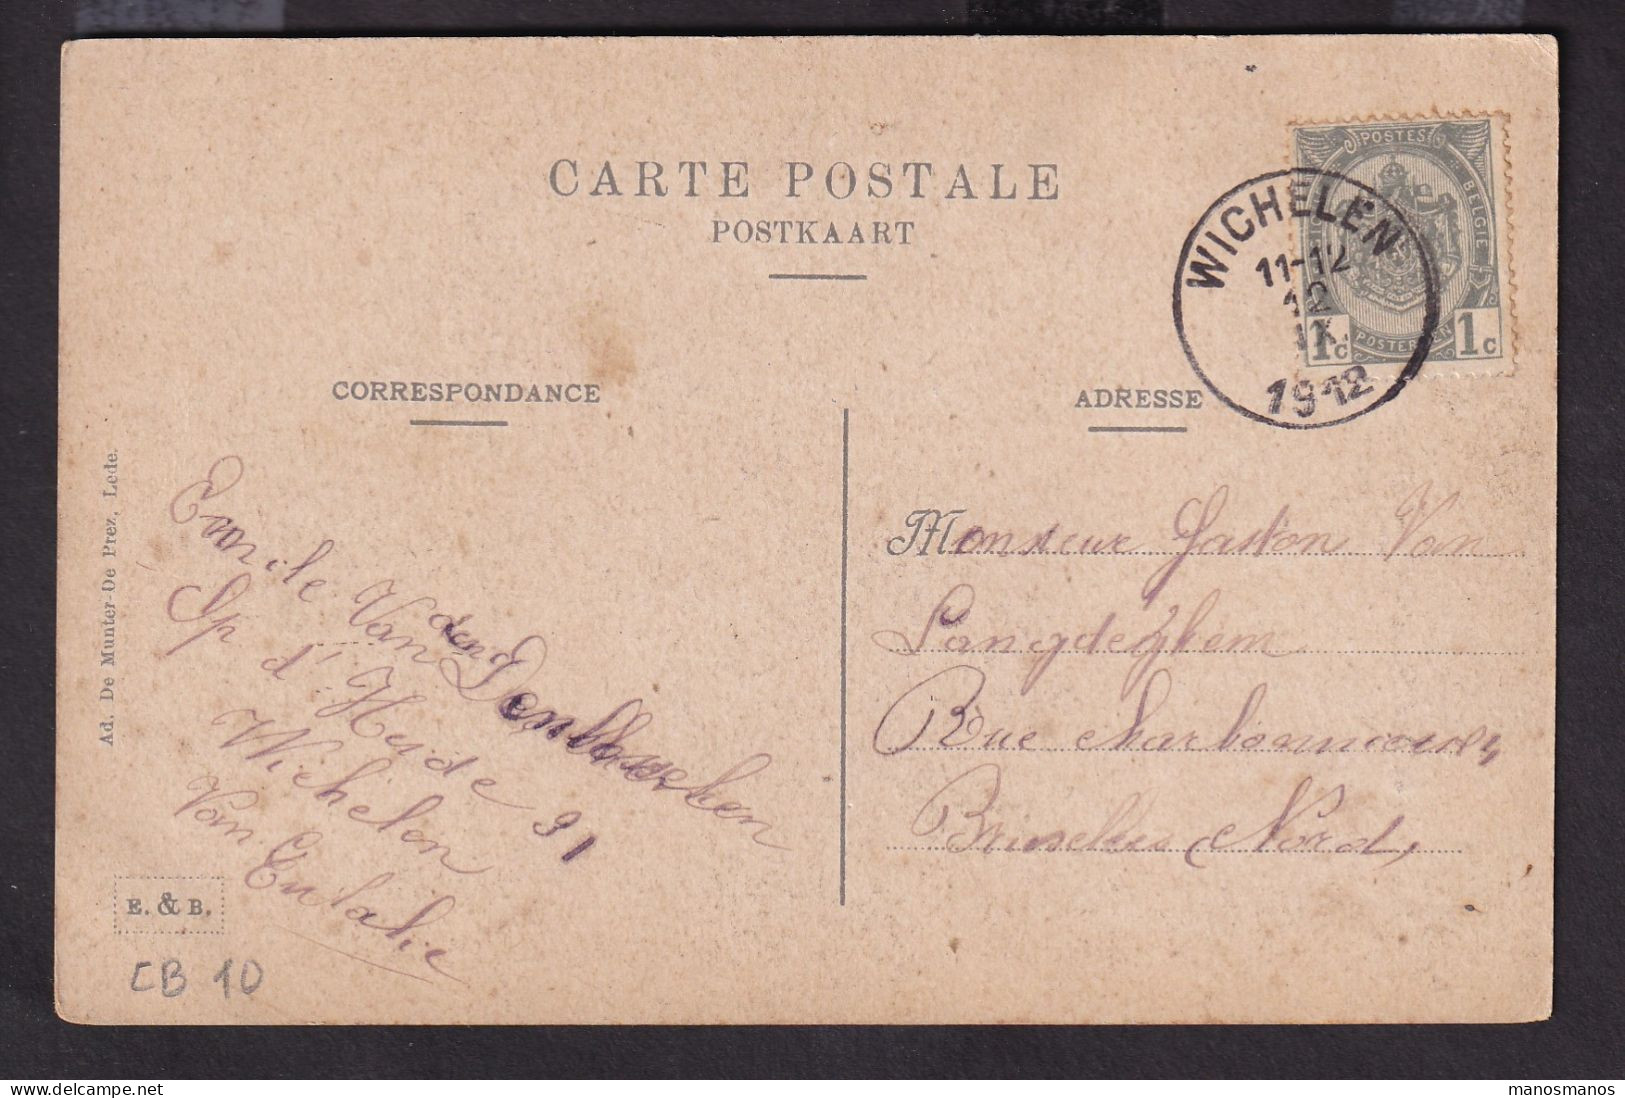 CARTE POSTALE
POSTKAART
CORRESPONDANCE
ADRESSE
POSTES
BELGIE
1c
1c
WICHELEN
11-12
12
IX
1912
Ad. De Munter-De Prez, Lede.
Emile Van den
Sp d'Heide 91
Wichelen
Van Eulalie
E. & B.
CB 10
Monsieur Gaston Van
Langdeghem
Rue
Bruxelles (Nord)
delcampe.net
manosmanos